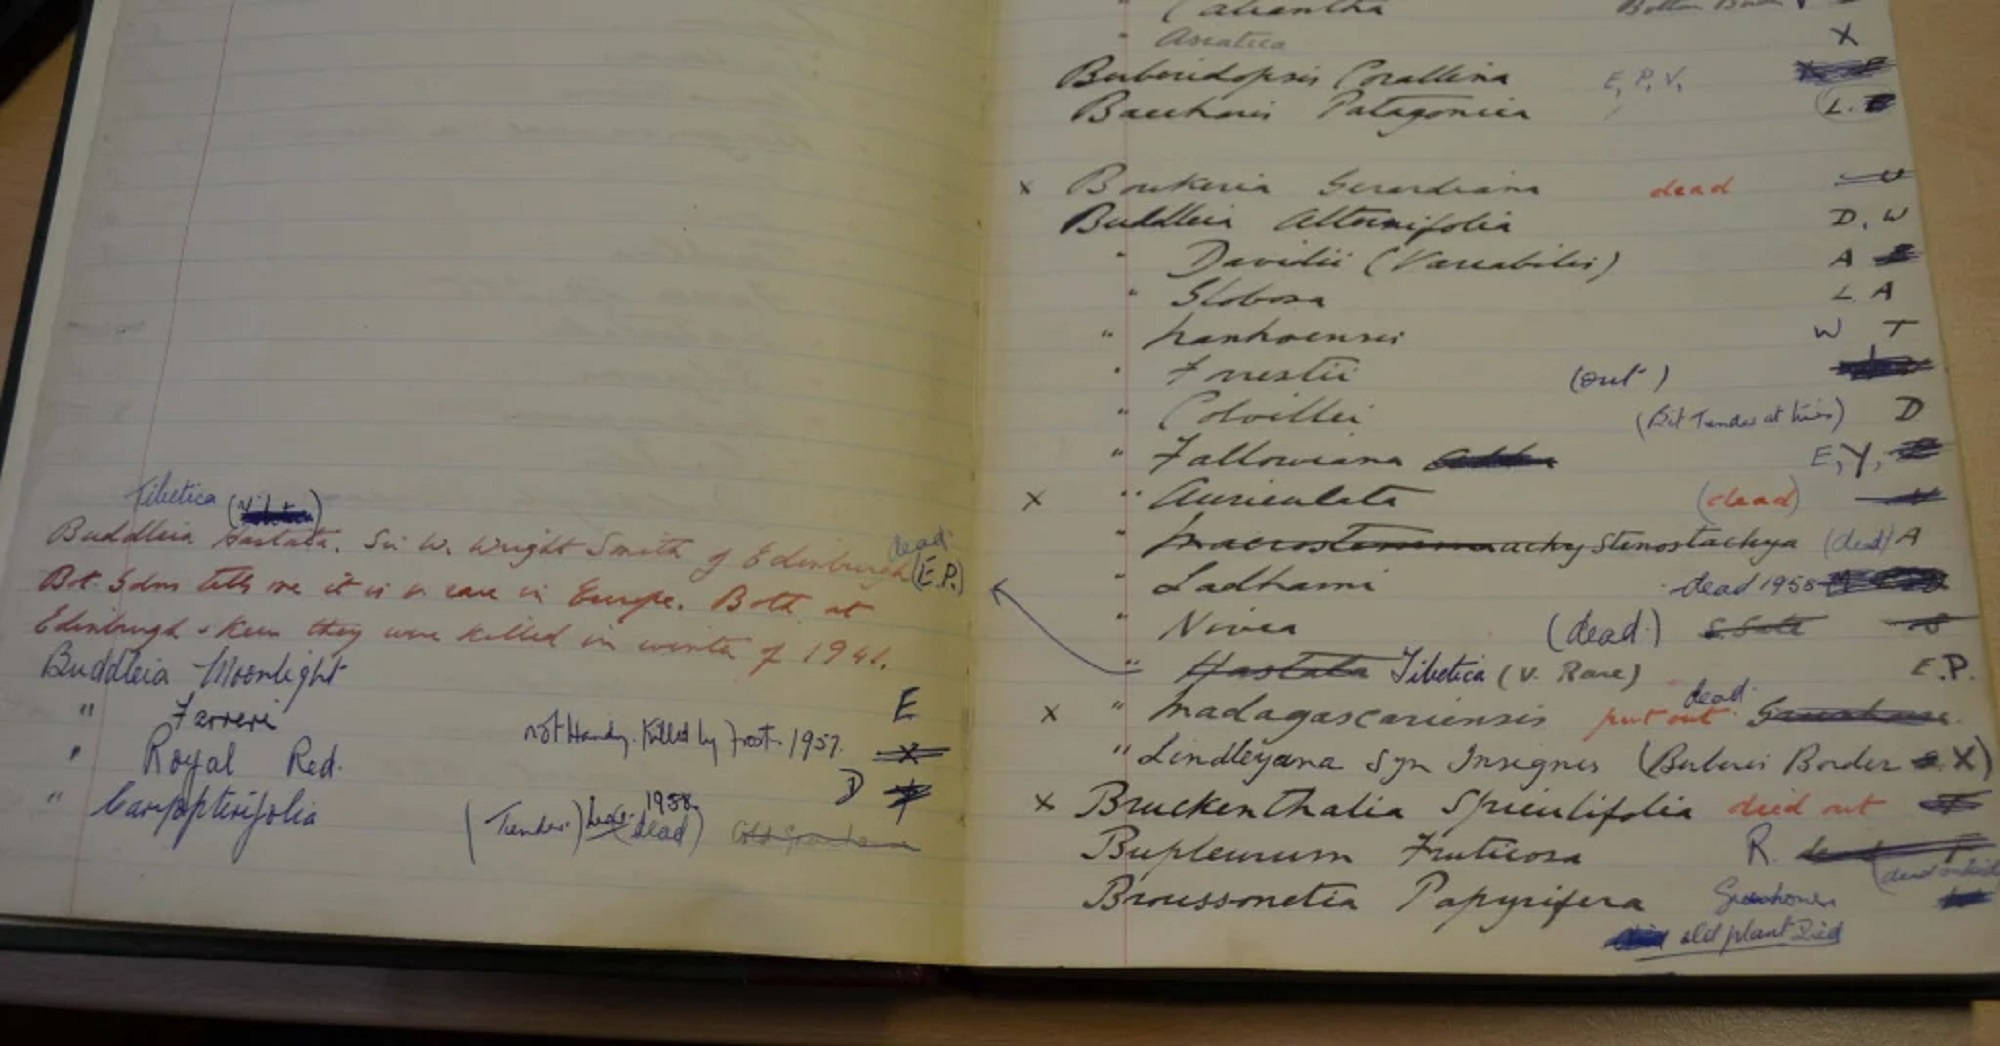 Tibetica
Buddleia Hastata. Sir W. Wright Smith of Edinburgh dead (E.P.)
Bot. Gdns tells me it is v. rare in Europe. Both at
Edinburgh & Kew they were killed in winter of 1941.
Buddleia Moonlight
" Farreri E
" Royal Red. not Hardy. Killed by Frost. 1957. X
" Caryopterifolia (Tender.) 1958. (dead) D
" Asiatica X
Berberidopsis Corallina E, P, V,
Baccharis Patagonica L.
x Boukeria Gerardiana dead
Buddleia Alternifolia D. W
" Davidii (Variabilis) A
" Globosa L A
" Nanhoensis W T
" Forrestii (out)
" Colvillei (Bit Tender at times) D
" Fallowiana E, Y,
x " Auriculata (dead)
" achy Stenostachya (dead) A
" Ladhami dead 1958
" Nivea (dead.)
" Hastata Tibetica (V. Rare) E.P.
x " Madagascariensis put out dead.
" Lindleyana Syn Insignis (Berberis Border X)
x Bruckenthalia Spiculifolia died out
Bupleurum Fruticosa R.
Broussonetia Papyrifera Greenhouse
old plant Died